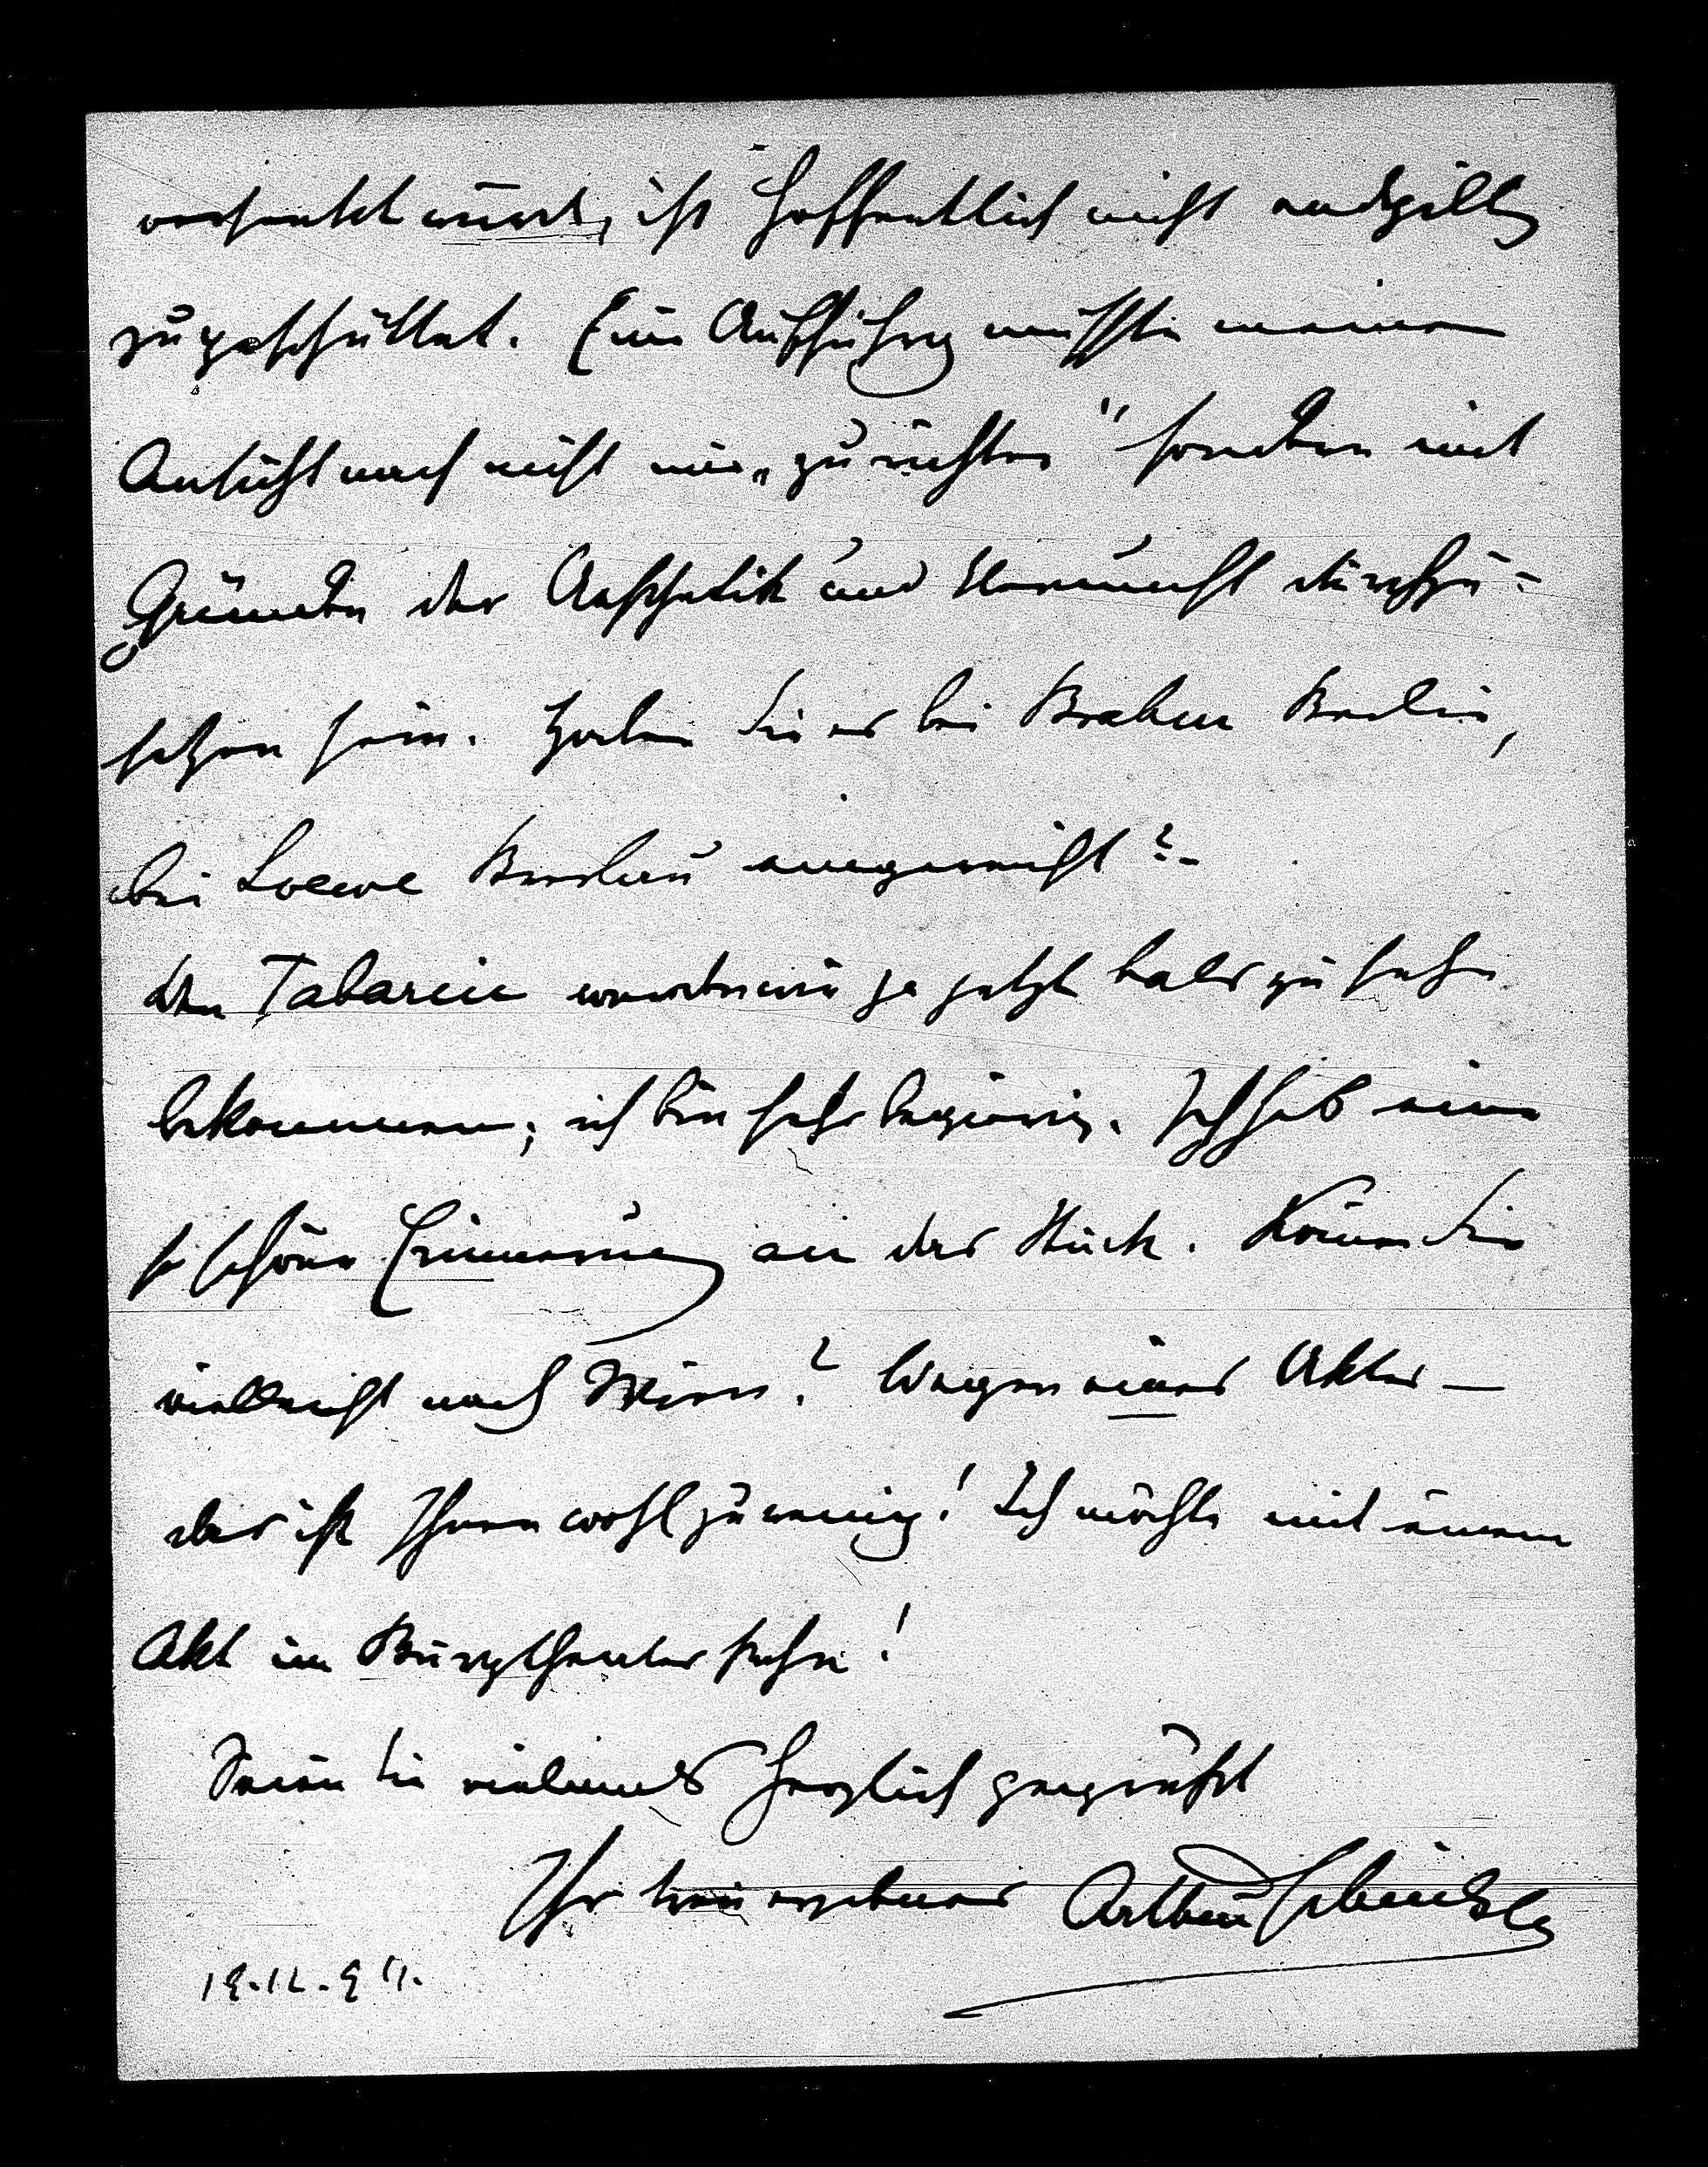 versenkt wurde, ist hoffentlich nicht endgiltig
zugeschüttet. Eine Aufführg müsste meiner
Ansicht nach nicht nur „zu richten" sondern mit
Gründen der Aesthetik und Vernunft durchzu-
setzen sein. Haben Sie es bei Brahm Berlin,
bei Loewe Breslau eingereicht?–
Den Tabarin werden wir ja jetzt bald zu sehn
bekommen; ich bin sehr begierig. Ich hab eine
so schöne Erinnerung an das Stück. Kommen Sie
vielleicht nach Wien? Wegen eines Aktes –
das ist Ihnen wohl zu wenig! Ich möchte mit einem
Akt im Burgtheater stehn!
Seien Sie vielmals herzlich gegrüßt
Ihr treu ergebener Arthur Schnitzler
19.12.94.